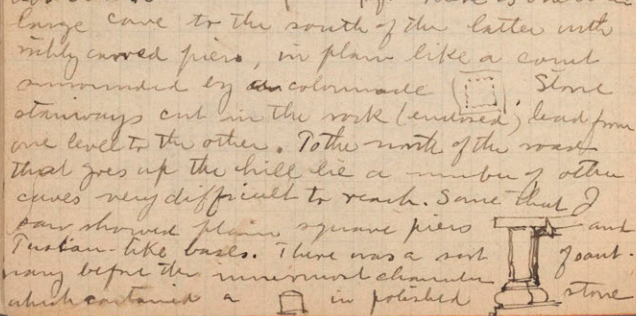 large cave to the south of the latter with
richly carved piers, in plan like a court
surrounded by colonnade. Stone
stairways cut in the rock (enclosed) lead from
one level to the other. To the north of the road
that goes up the hill lie a number of other
caves very difficult to reach. Some that I
saw showed plain square piers and
Tuscan-like bases. There was a sort of sanct-
uary before the innermost chamber
which contained a in polished stone